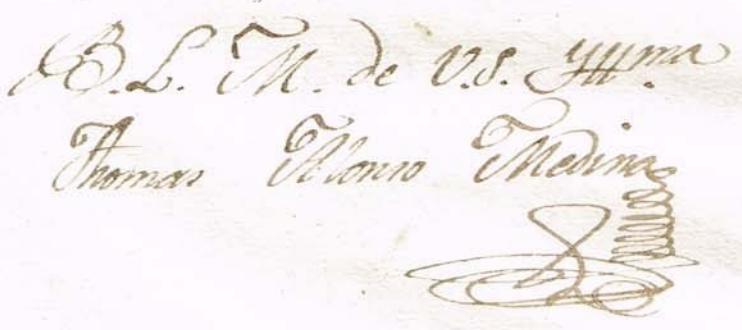 B. L. M. de V.S. Yllma.
Thomas Alonso Medina